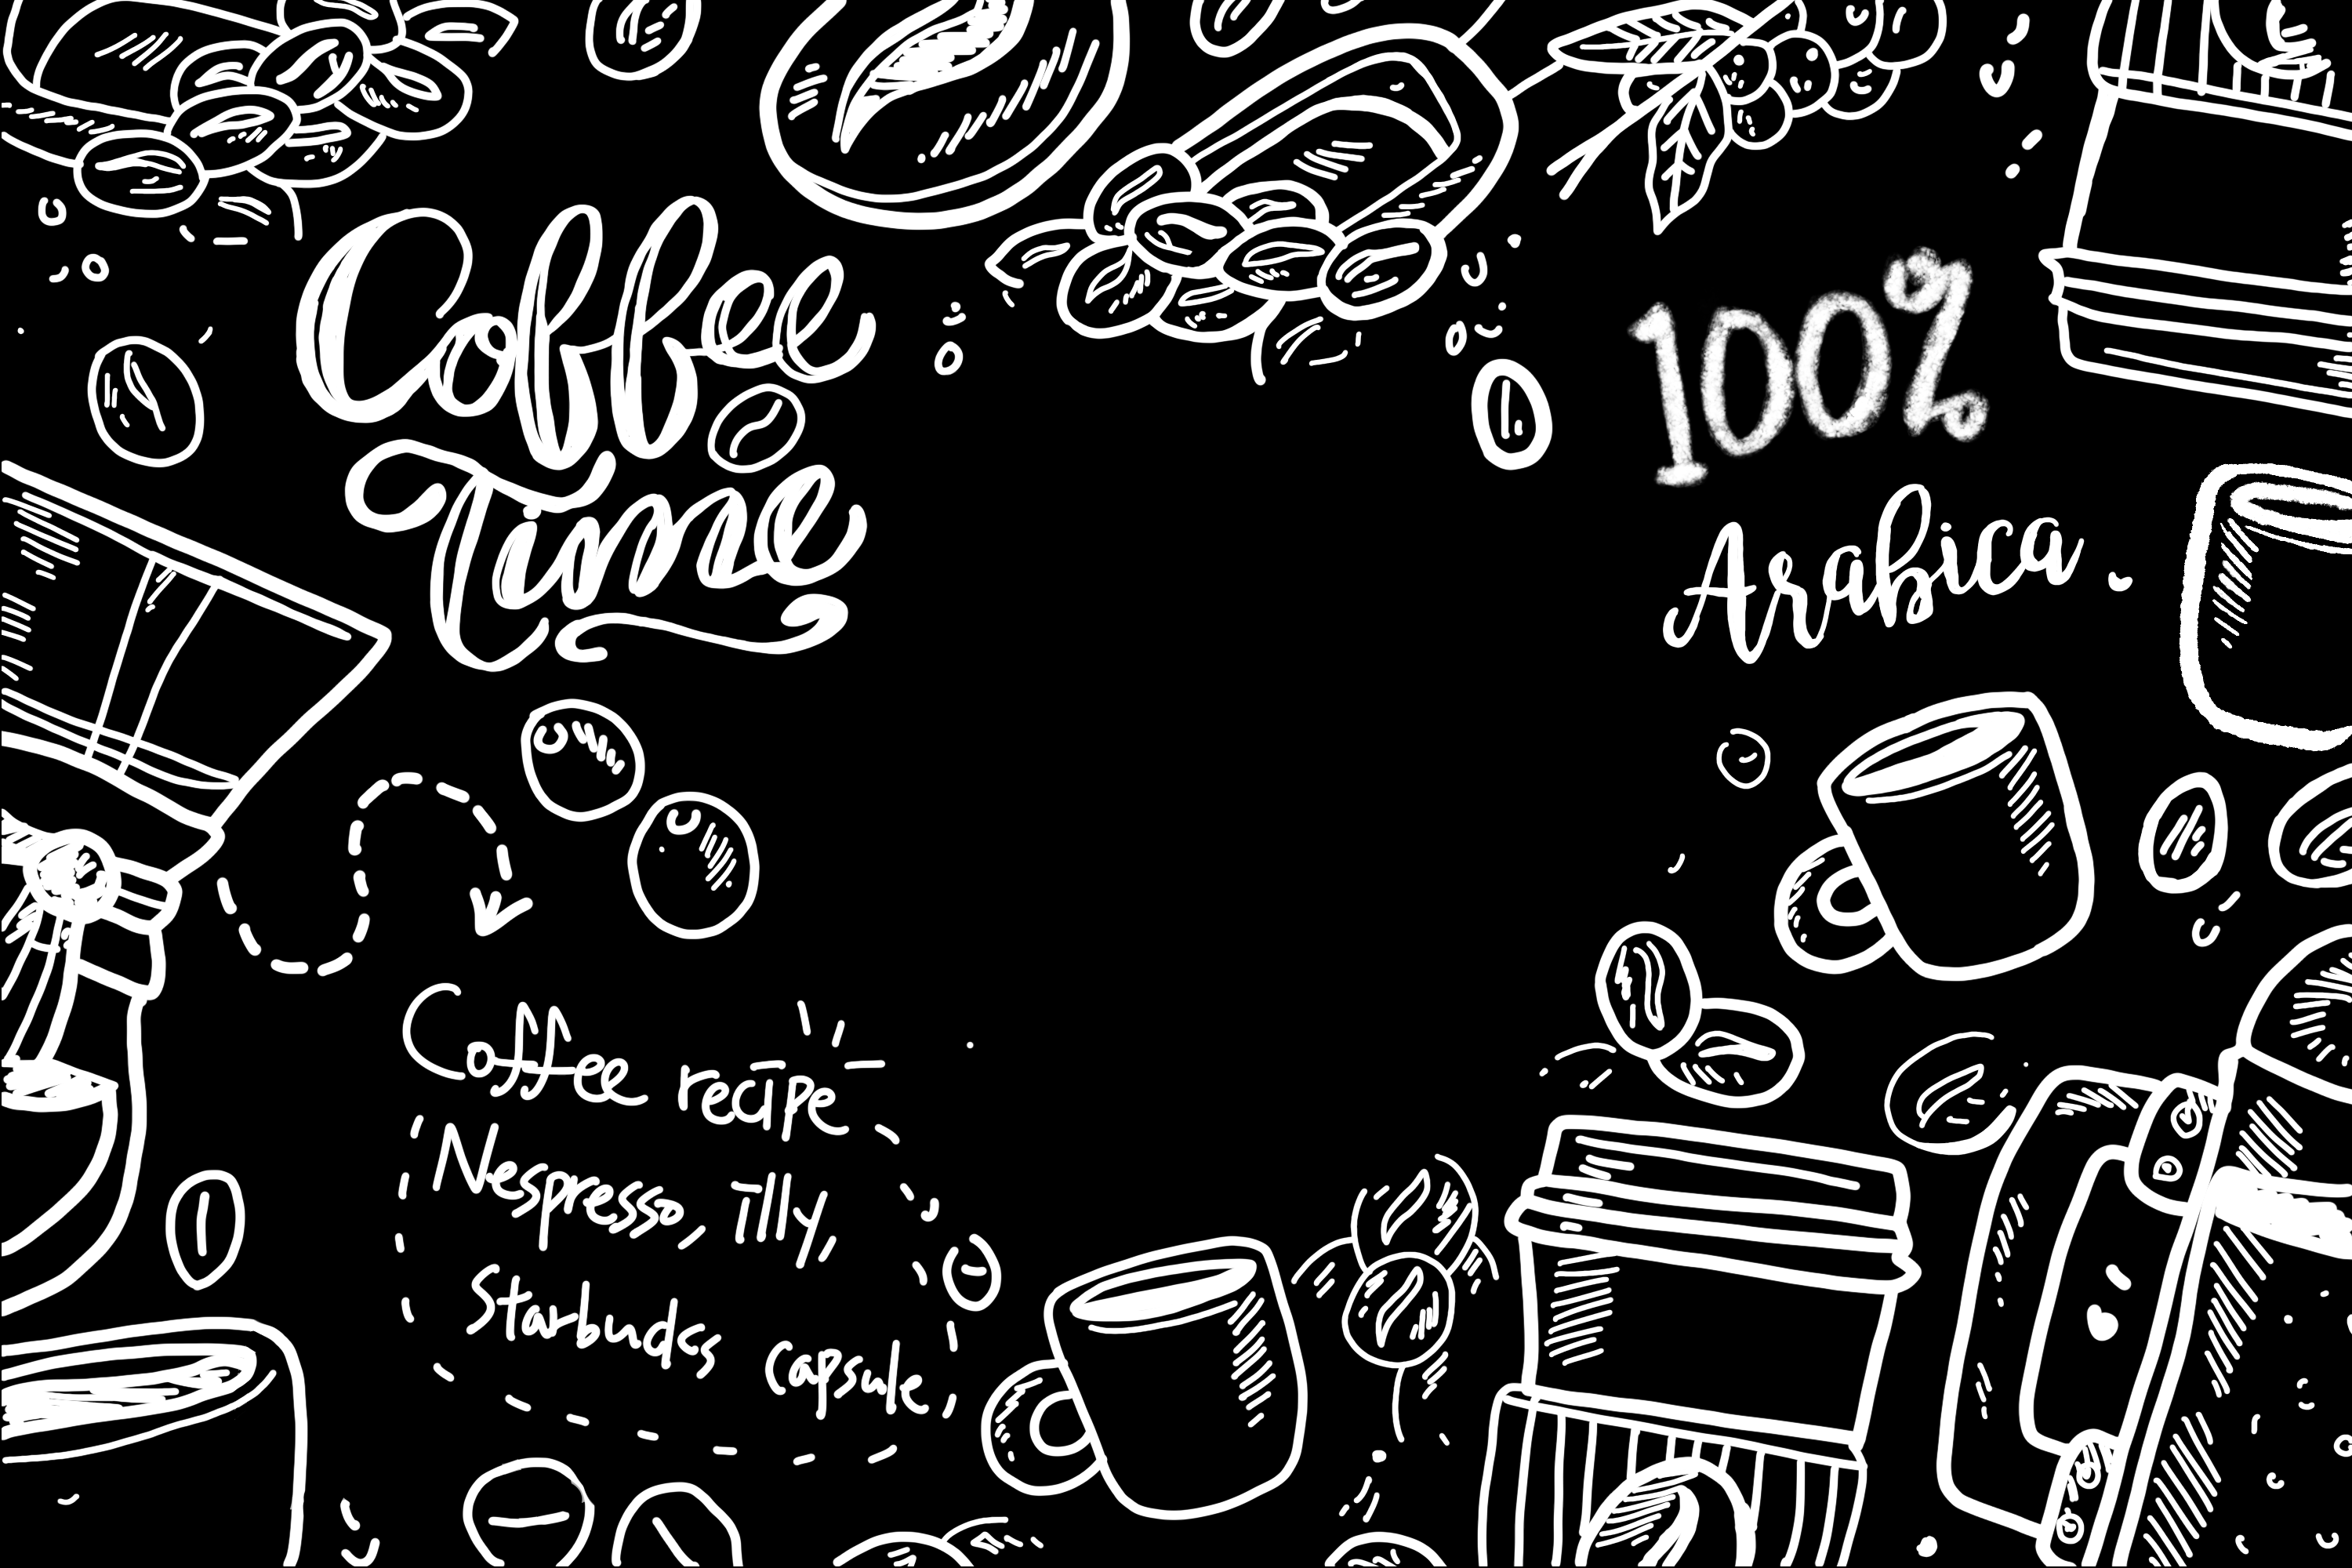 Coffee
Time
100%
Arabica.
Coffee recipe
Nespresso, illy,
Starbudss capsule,